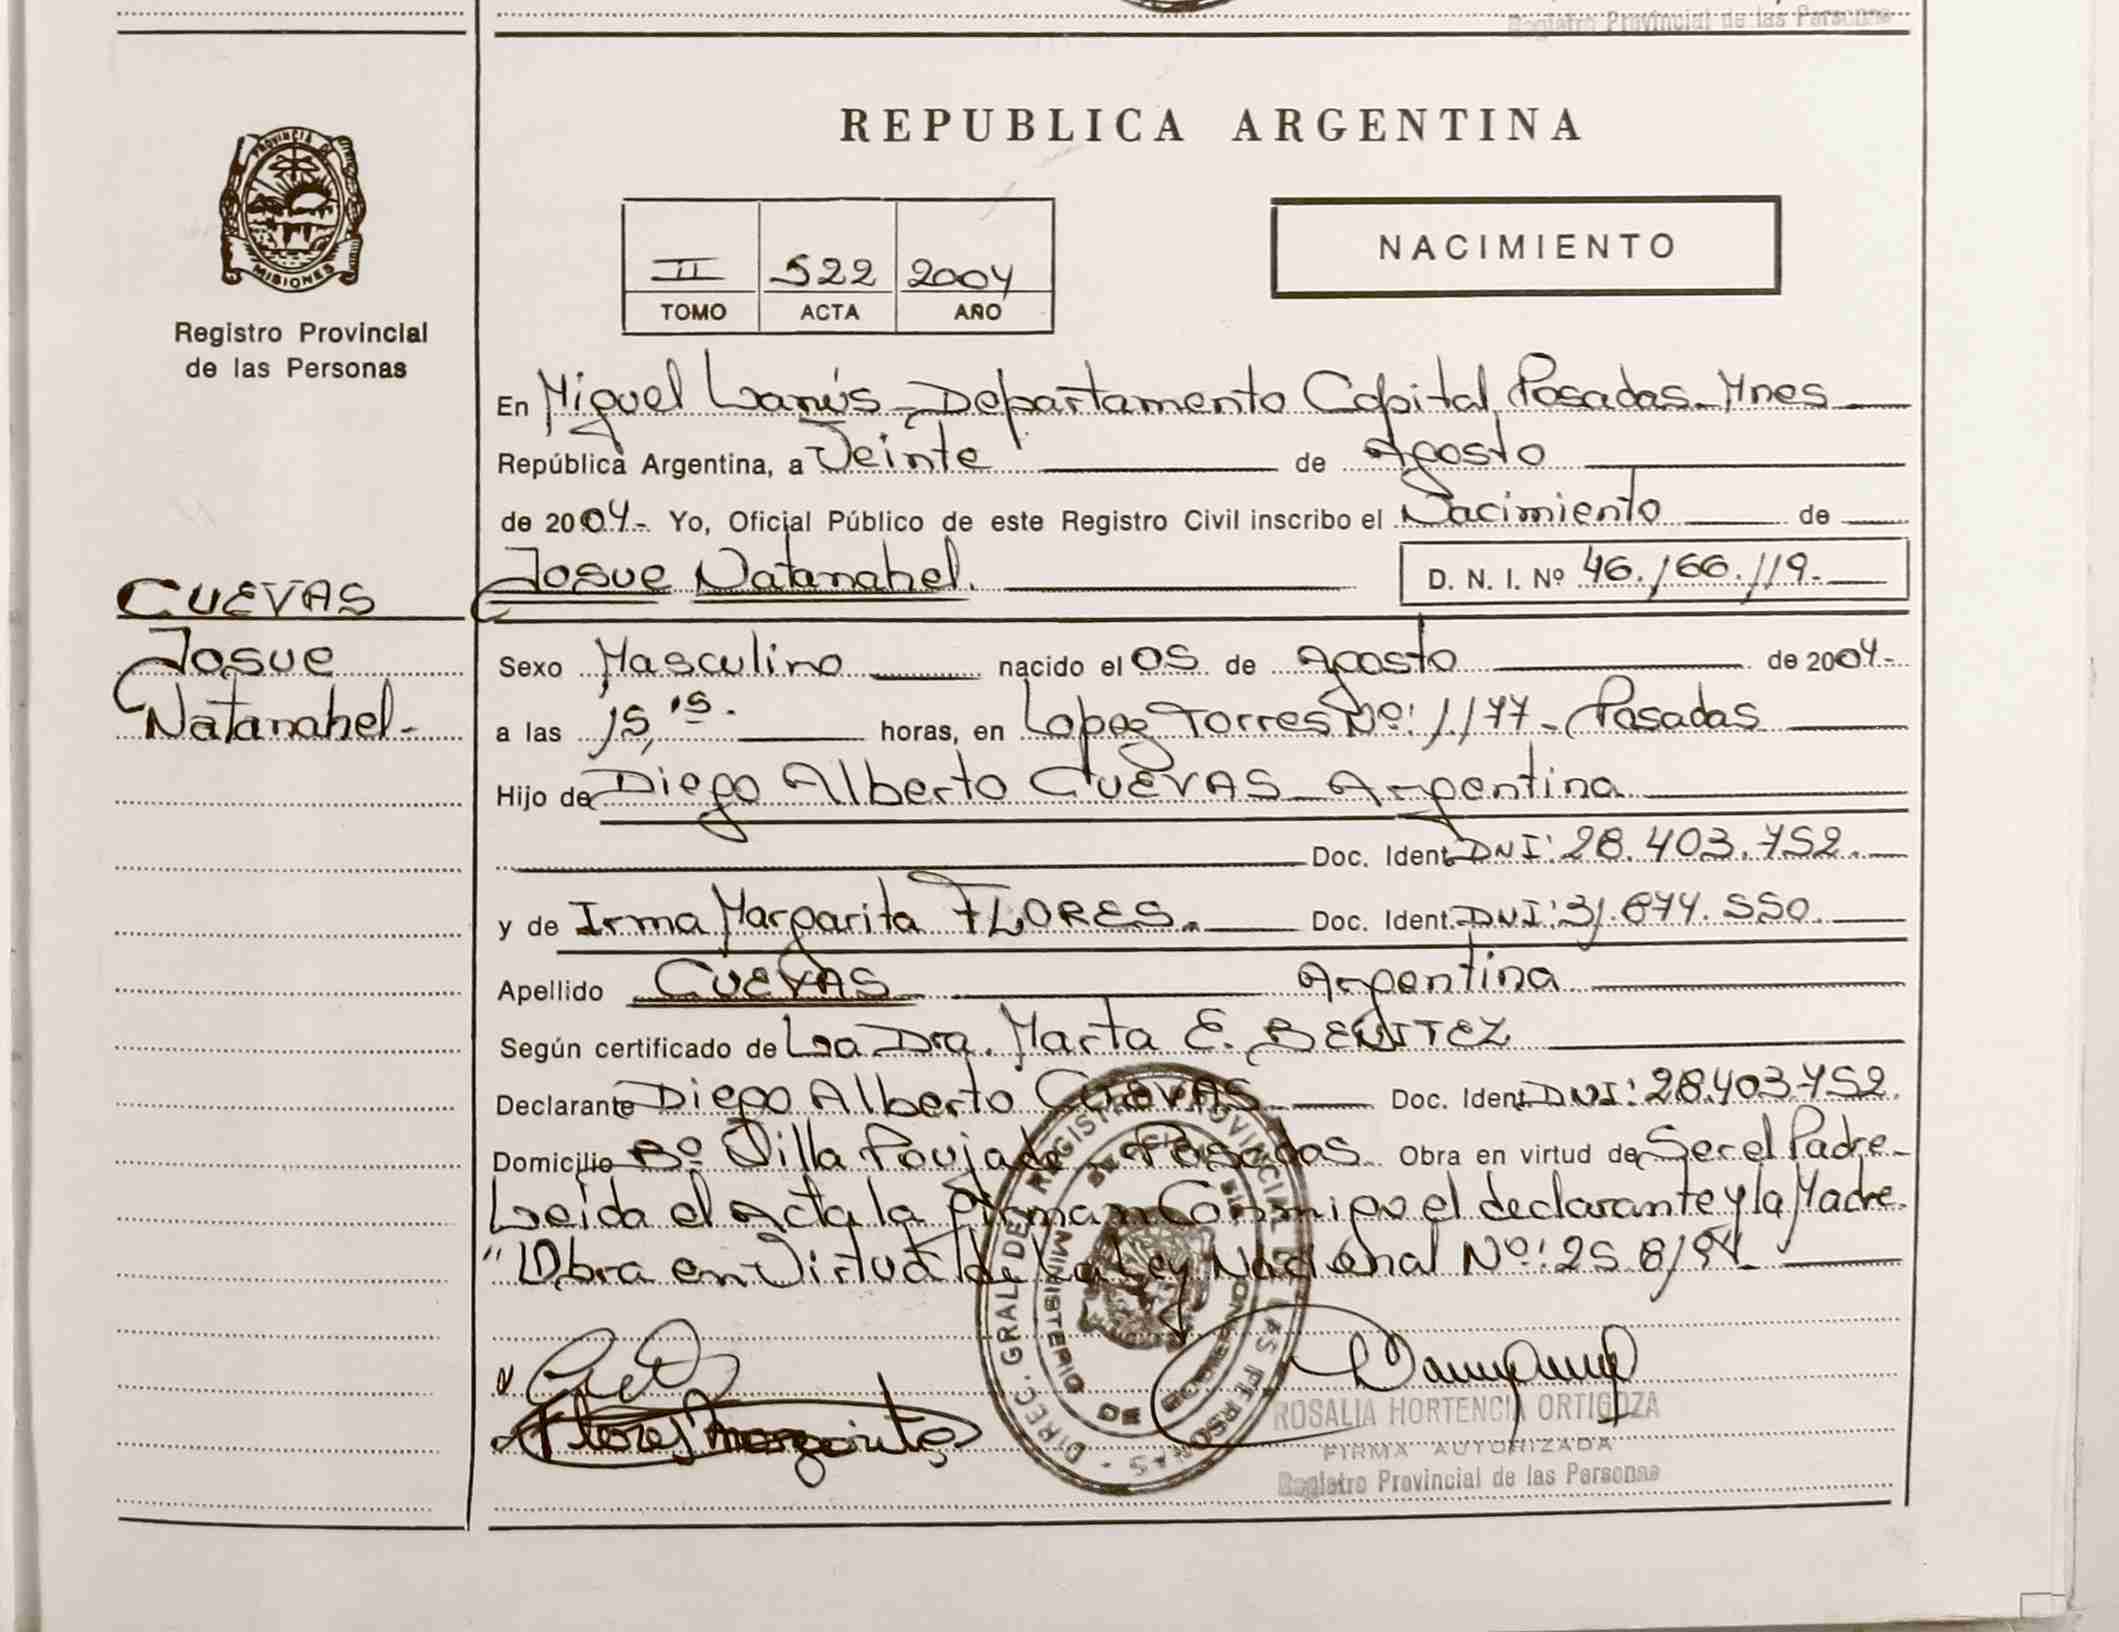 Registro Provincial de las Personas
REPUBLICA ARGENTINA
PROVINCIA DE
MISIONES
Registro Provincial
de las Personas
II 522 2004
TOMO ACTA AÑO
NACIMIENTO
En Miguel Lanús - Departamento Capital, Posadas - Mnes
República Argentina, a Veinte de Agosto
de 2004.- Yo, Oficial Público de este Registro Civil inscribo el Nacimiento de
Josue Natanahel. D. N. I. Nº 46.166.119.-
CUEVAS
Josue
Natanahel.-
Sexo Masculino nacido el 05 de Agosto de 2004.-
a las 15,15. horas, en Lopez Torres Nº: 1177 - Posadas
Hijo de Diego Alberto CUEVAS - Argentina
Doc. Ident. DNI: 28.403.752.-
y de Irma Margarita FLORES. Doc. Ident. DNI: 31.674.550.
Apellido CUEVAS Argentina
Según certificado de La Dra. Marta E. BENITEZ
Declarante Diego Alberto CUEVAS Doc. Ident. DNI: 28.403.752.
Domicilio Bº Villa Poujade - Posadas. Obra en virtud de Ser el Padre.-
Leida el Acta la firman Conmigo el declarante y la Madre.
"Obra en Virtud de la Ley Nacional Nº: 25.819.
DIREC. GRAL DEL REGISTRO PROVINCIAL DE LAS PERSONAS
MINISTERIO DE GOBIERNO
Flores Margarita
ROSALIA HORTENCIA ORTIGOZA
FIRMA AUTORIZADA
Registro Provincial de las Personas